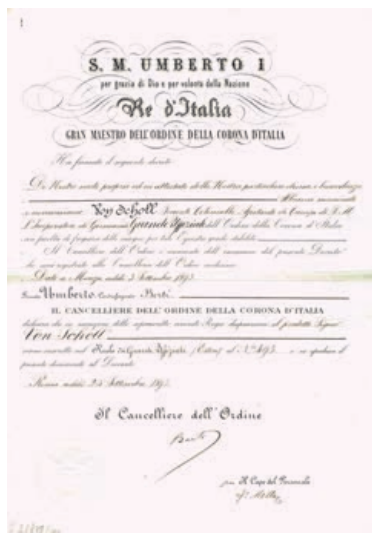 S. M. UMBERTO I
per grazia di Dio e per volontà della Nazione
Re d'Italia
GRAN MAESTRO DELL'ORDINE DELLA CORONA D'ITALIA
Ha firmato il seguente decreto
Di Nostro motu proprio ed in attestato della Nostra particolare
Abbiamo nominato
Von Scholl Tenente Colonnello Aiutante di Campo di S. M.
l'Imperatore di Germania Grande Uffiziale dell'Ordine della Corona d'Italia
con facoltà di fregiarsi delle insegne per tale Equestre grado stabilite
Il Cancelliere dell'Ordine è incaricato dell'esecuzione del presente Decreto
che sarà registrato alla Cancelleria dell'Ordine medesimo
Dato a Monza addì 3 Settembre 1893
Firmato Umberto Contrassegnato
IL CANCELLIERE DELL'ORDINE DELLA CORONA D'ITALIA
dichiara che in esecuzione delle Regie disposizioni il predetto Signor
Von Scholl
venne inscritto nel Ruolo dei Grandi Uffiziali (Esteri) al N.° e ne spedisce il
presente documento al Decorato
Roma addì 25 Settembre 1893
Il Cancelliere dell'Ordine